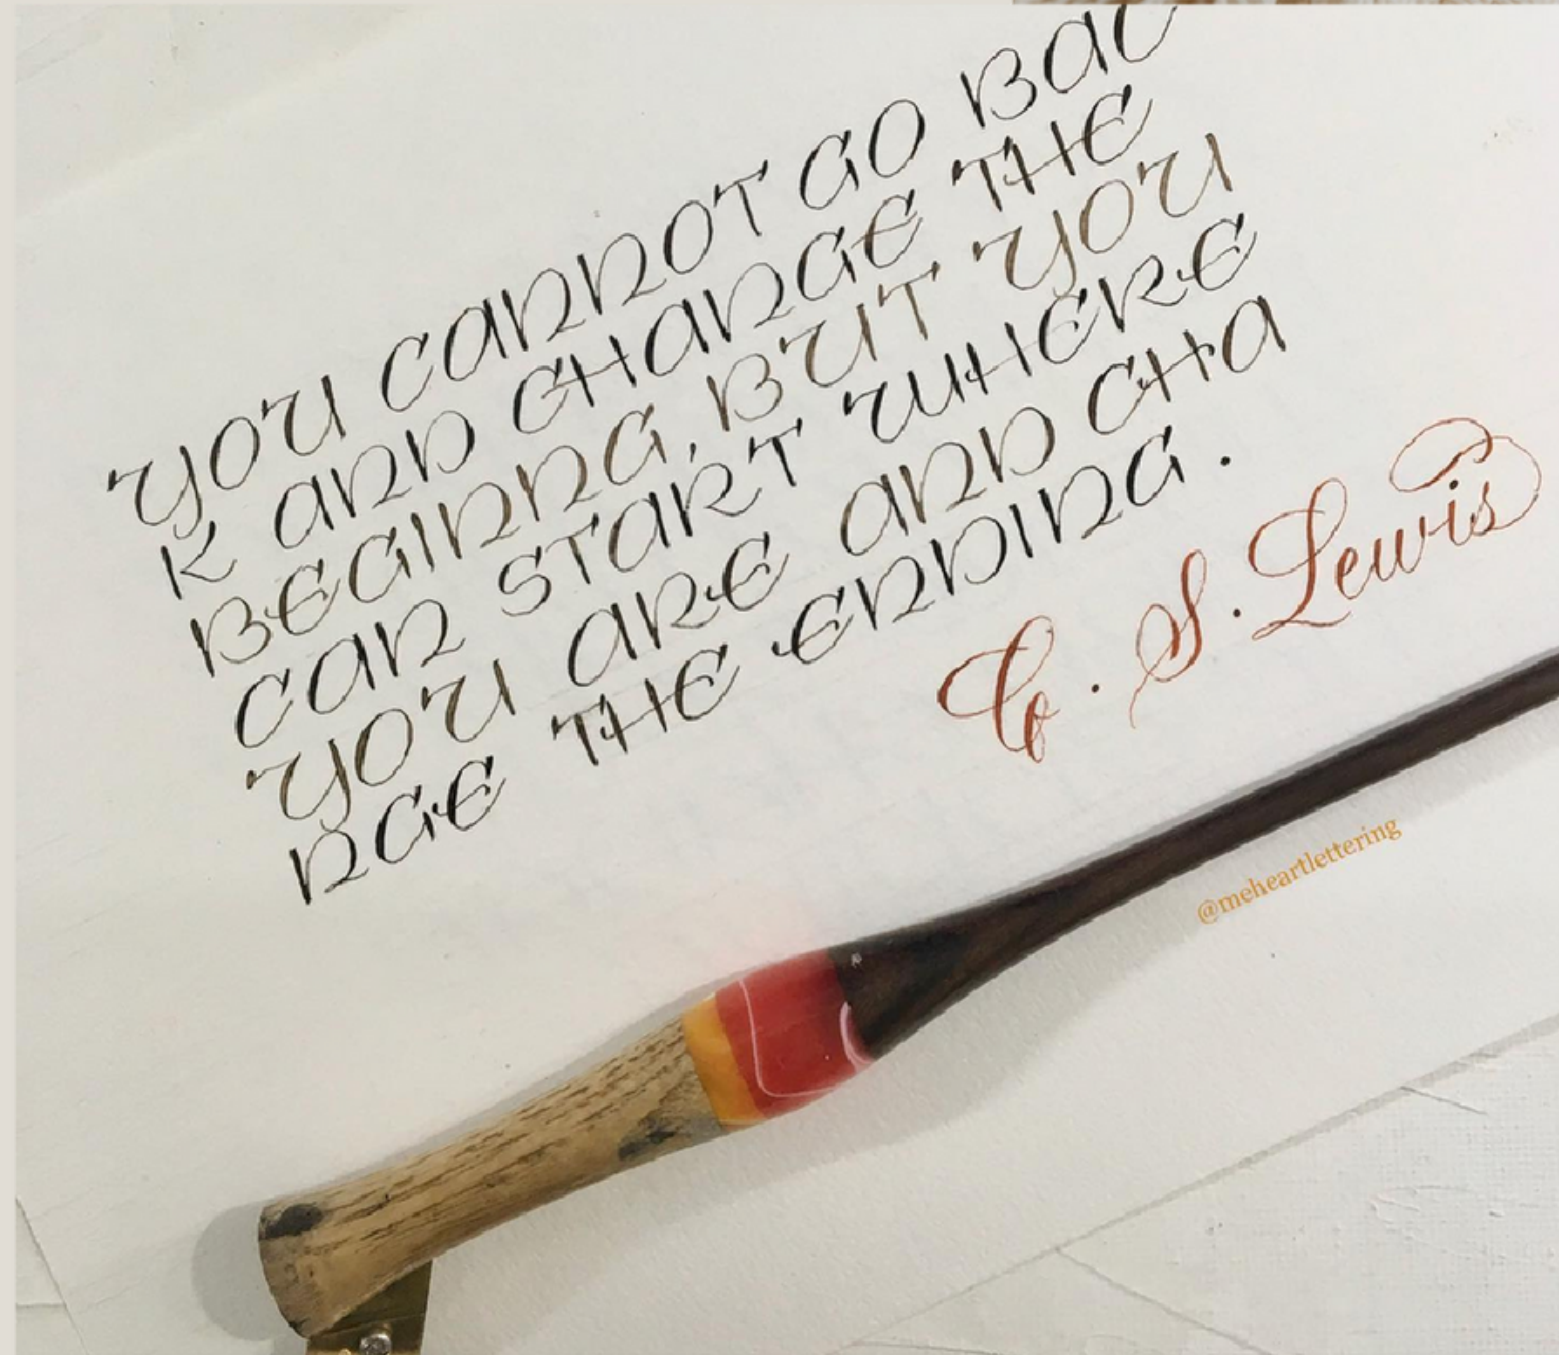 YOU CANNOT GO BAC
K AND CHANGE THE
BEGINNG, BUT YOU
CAN START WHERE
YOU ARE AND CHA
NGE THE ENDING .
C. S. Lewis
@meheartlettering